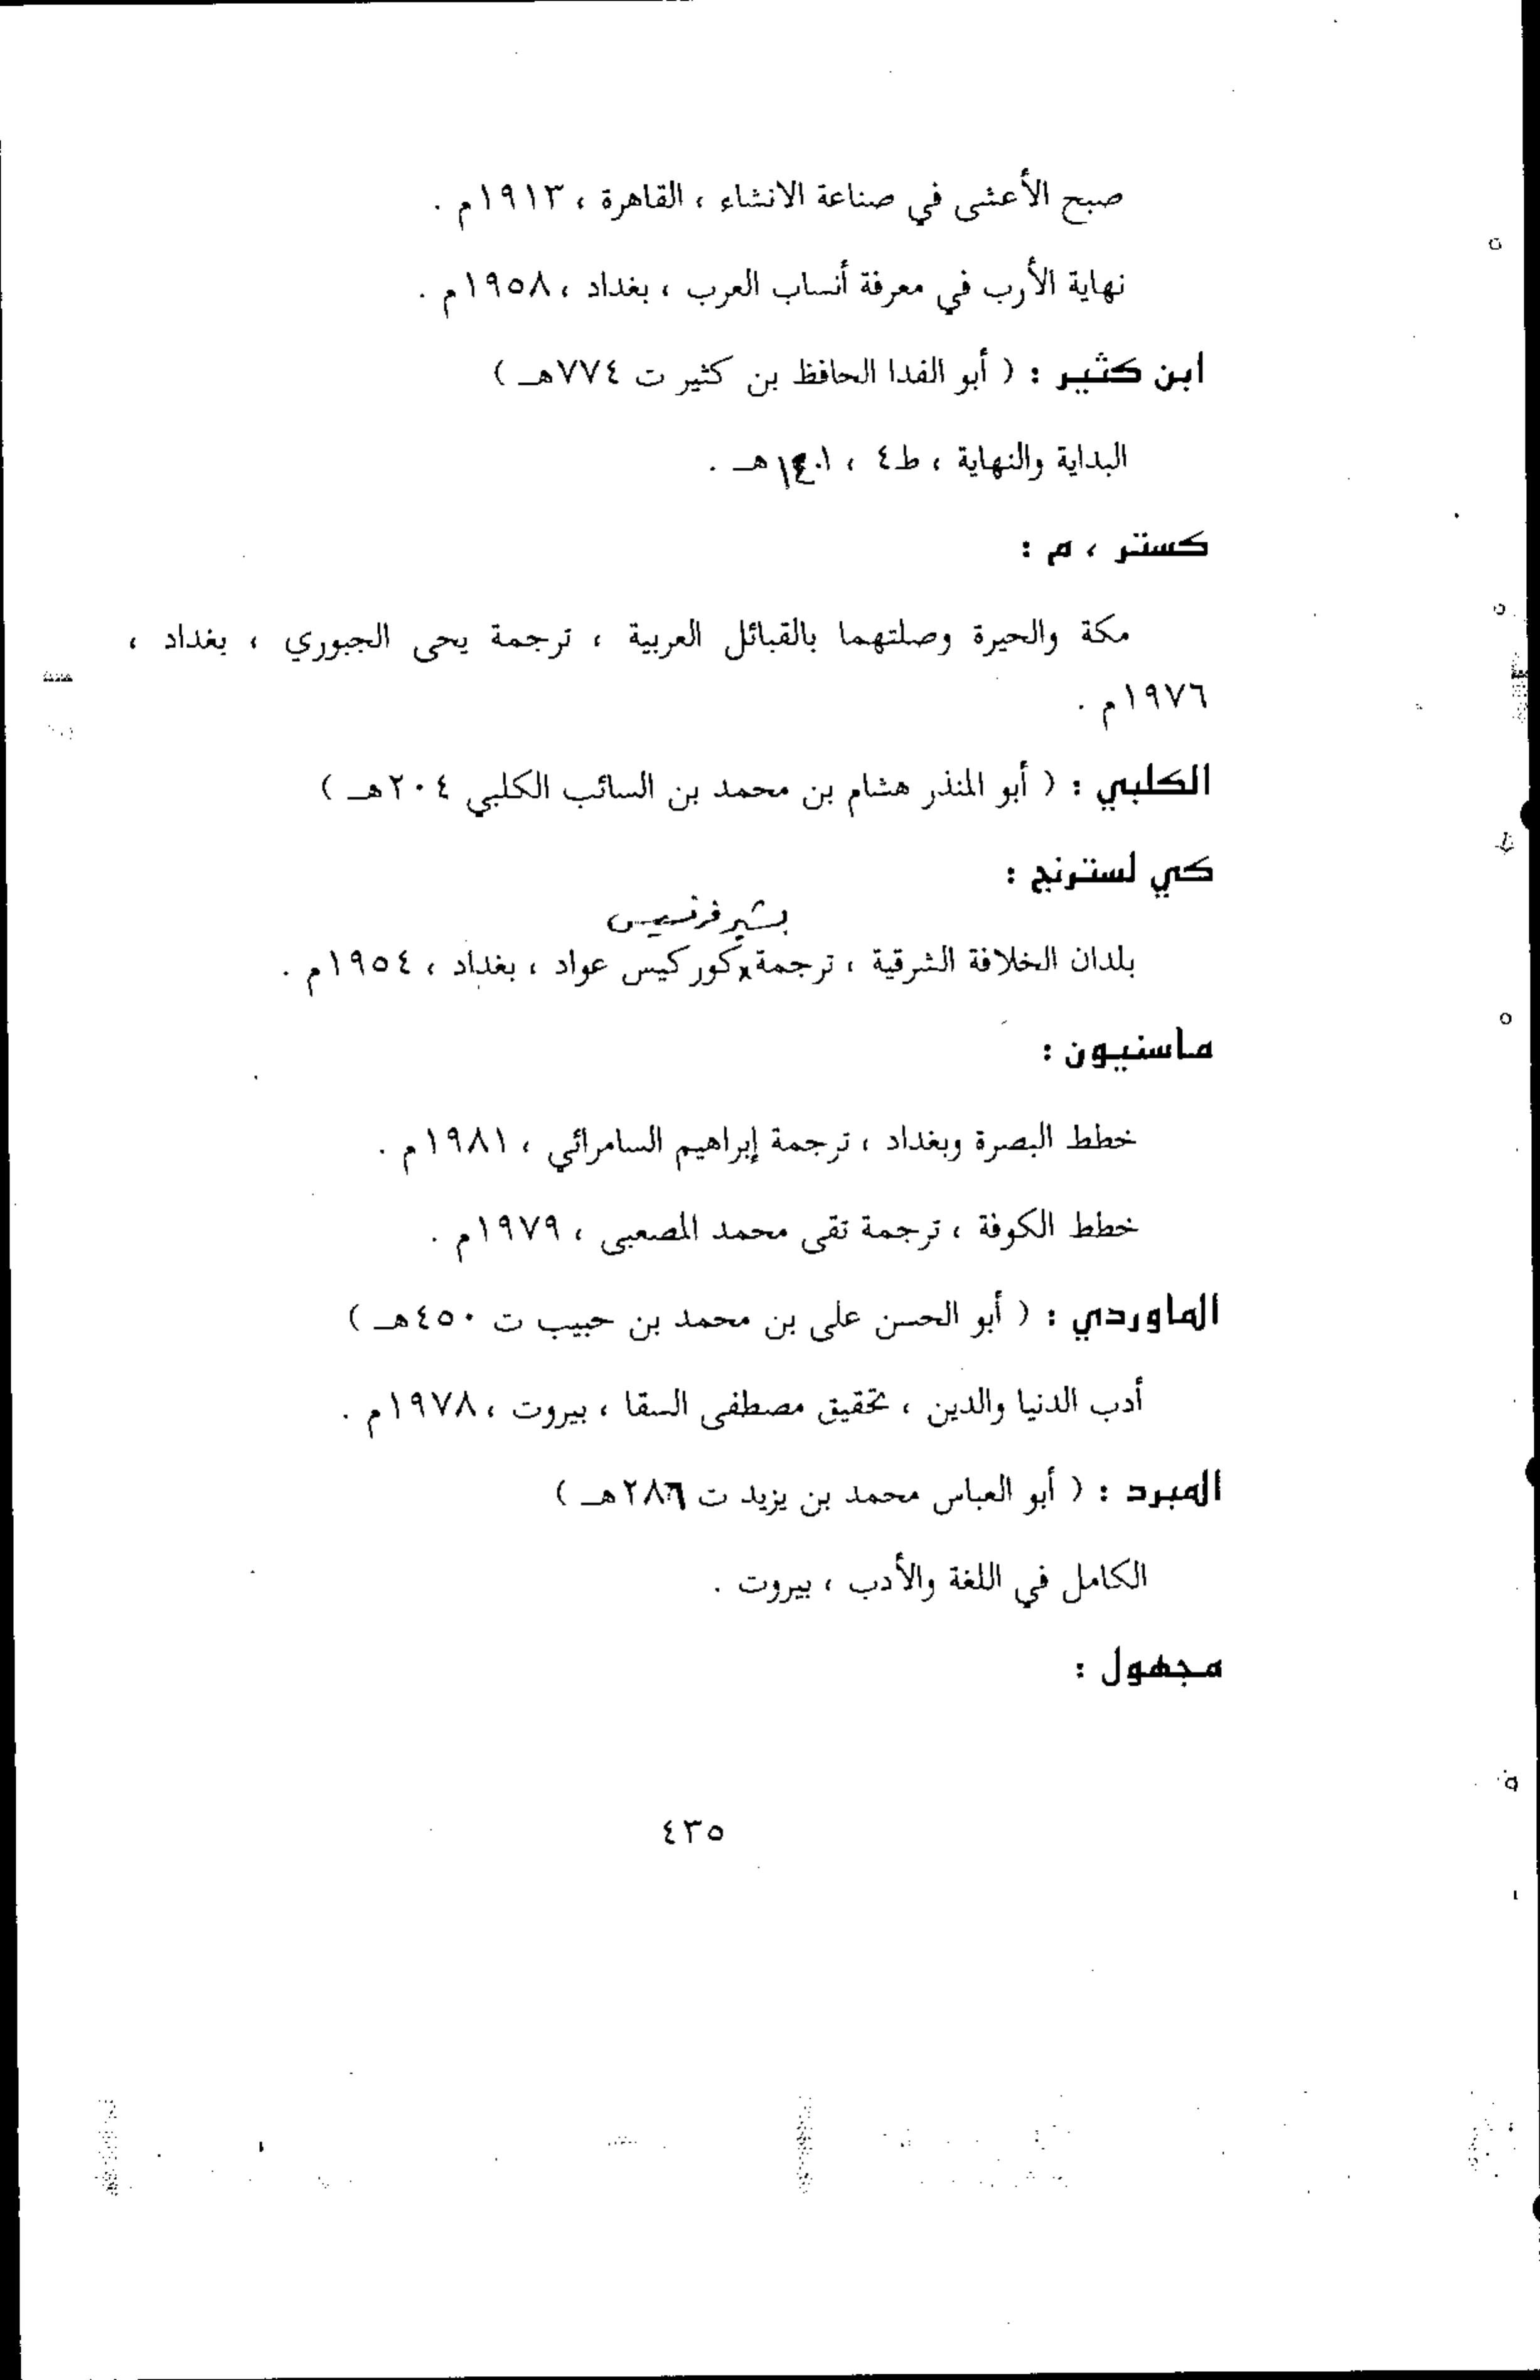 صبح الأعشى في صناعة الانشاء ، القاهرة ، ١٩١٣م .
نهاية الأرب في معرفة أنساب العرب ، بغداد ، ١٩٥٨م .
ابن كثير : ( أبو الفدا الحافظ بن كثير ت ٧٧٤هـ )
البداية والنهاية ، ط٤ ، ١٤٠١هـ .
كستر ، م :
مكة والحيرة وصلتهما بالقبائل العربية ، ترجمة يحى الجبوري ، بغداد ،
١٩٧٦م .
الكلبي : ( أبو المنذر هشام بن محمد بن السائب الكلبي ٢٠٤هـ )
كي لسترنج :
بشير فرنسيس
بلدان الخلافة الشرقية ، ترجمة x كوركيس عواد ، بغداد ، ١٩٥٤م .
ماسنيون :
خطط البصرة وبغداد ، ترجمة إبراهيم السامرائي ، ١٩٨١م .
خطط الكوفة ، ترجمة تقى محمد المصعبى ، ١٩٧٩م .
الماوردي : ( أبو الحسن على بن محمد بن حبيب ت ٤٥٠هـ )
أدب الدنيا والدين ، تحقيق مصطفى السقا ، بيروت ، ١٩٧٨م .
المبرد : ( أبو العباس محمد بن يزيد ت ٢٨٦هـ )
الكامل في اللغة والأدب ، بيروت .
مجهول :
٤٣٥